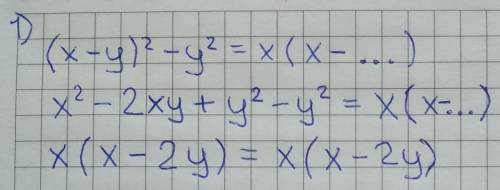 1)
(x-y)² - y² = x(x - ...)
x² - 2xy + y² - y² = x(x-...)
x(x - 2y) = x(x - 2y)